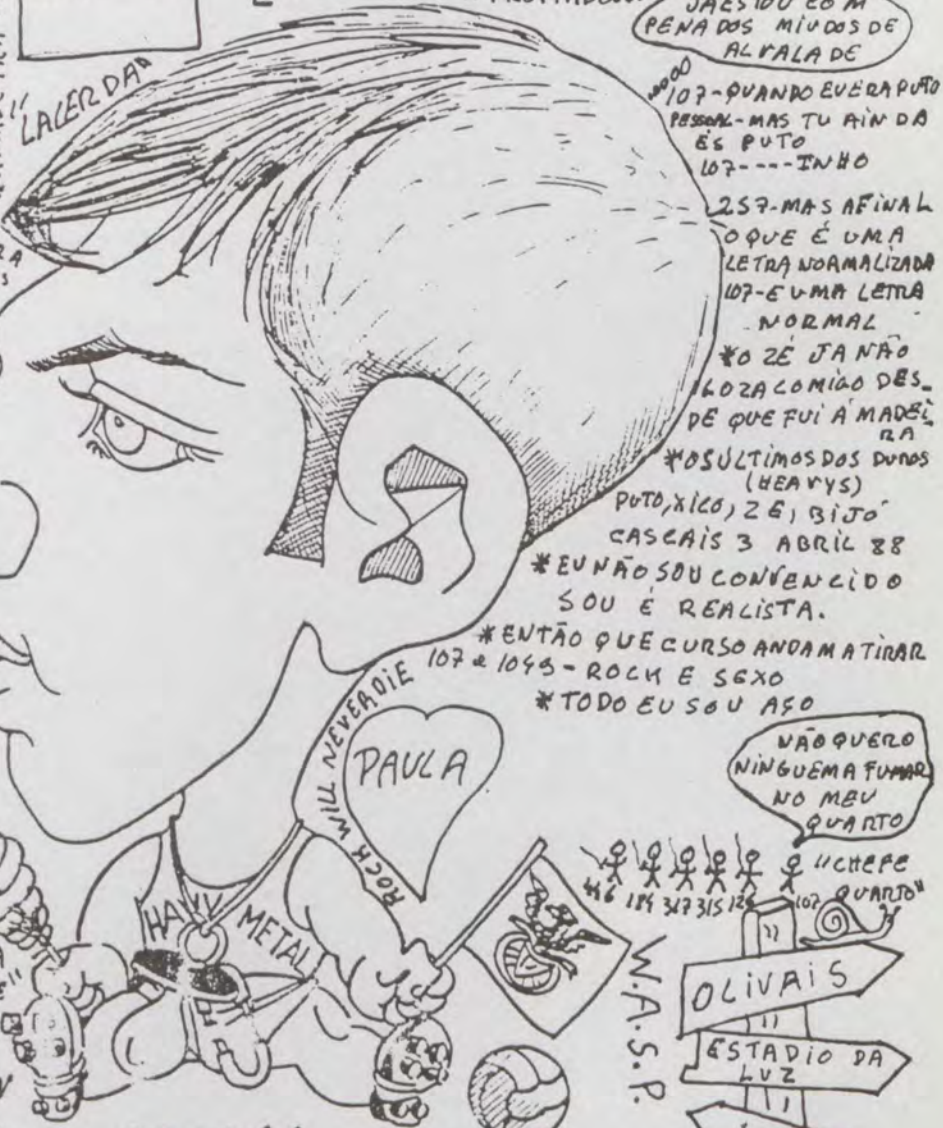 JÁ ESTOU COM
PENA DOS MIUDOS DE
ALVALADE
"LACERDA"
107-QUANDO EU ERA PUTO
PESSOAL-MAS TU AINDA
ÉS PUTO
107----INHO
257-MAS AFINAL
O QUE É UMA
LETRA NOAMALIZADA
107-E UMA LETRA
NORMAL
*O ZÉ JA NÃO
GOZA COMIGO DES_
DE QUE FUI Á MADEI_
RA
*OS ÚLTIMOS DOS DUROS
(HEAVYS)
PUTO, XICO, ZÉ, BIJÓ
CASCAIS 3 ABRIL 88
*EU NÃO SOU CONVENCIDO
SOU É REALISTA.
*ENTÃO QUE CURSO ANDAM A TIRAR
107 e 1049-ROCK E SEXO
*TODO EU SOU AÇO
ROCK WILL NEVER DIE
PAULA
NÃO QUERO
NINGUEM A FUMAR
NO MEU
QUARTO
"CHEFE
QUARTO"
446 184 317 315 126 107
HAVY METAL
W.A.S.P.
OLIVAIS
ESTADIO DA
LUZ